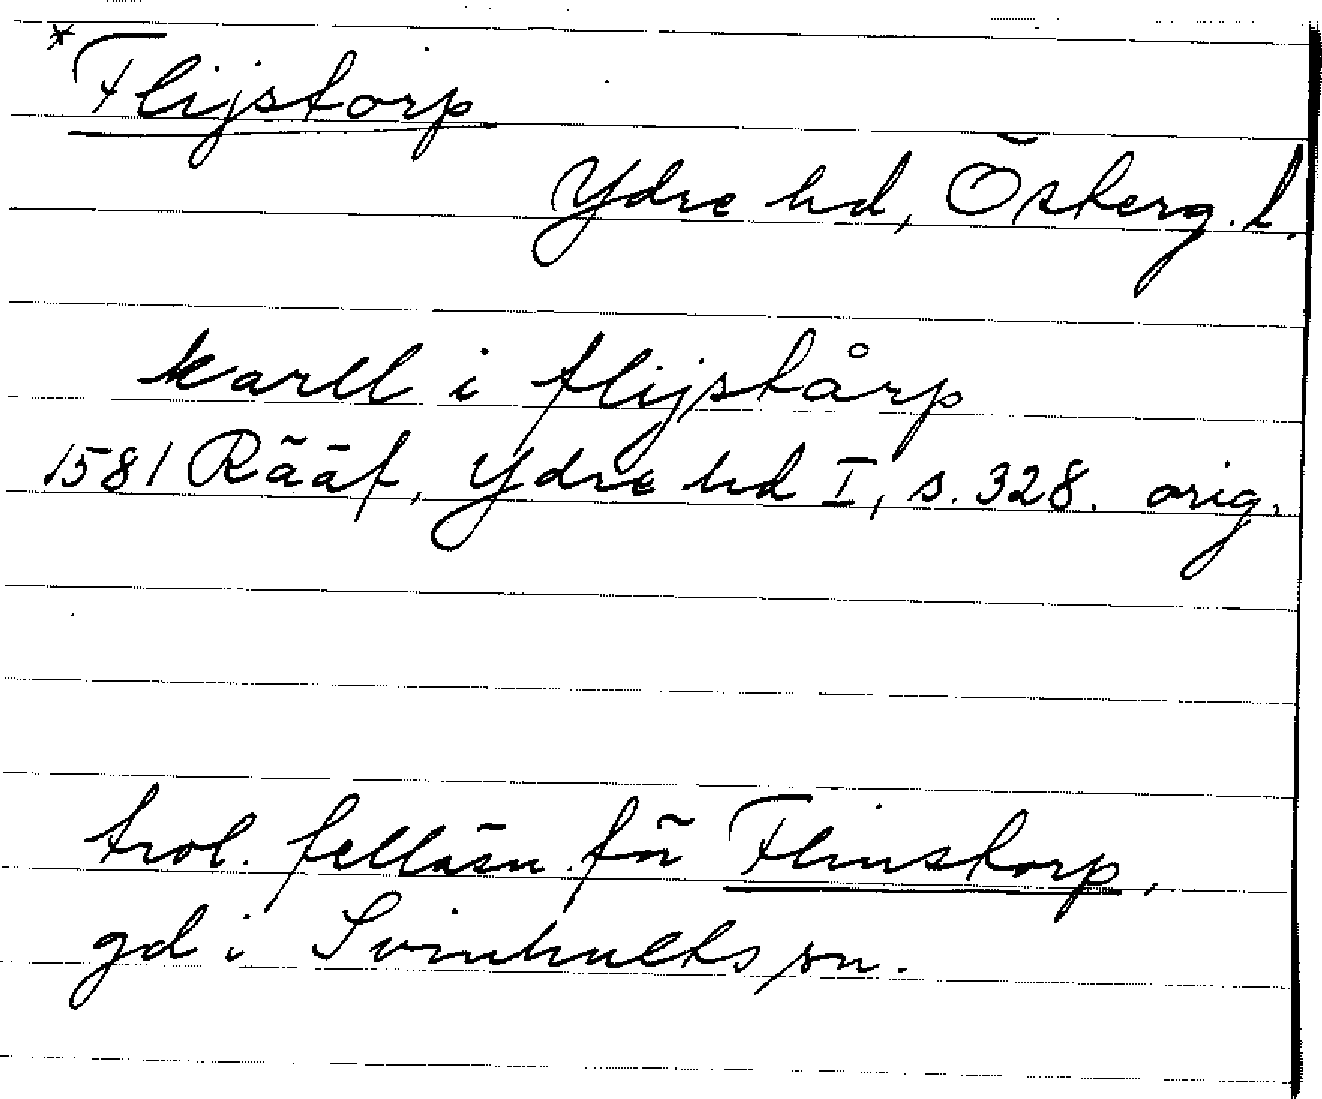 * Flijstorp
Ydre hd, Österg. l.
karll i flijstårp
1581 Rääf, Ydre hd I, s. 328. orig.
trol. felläsn. för Flinstorp,
gd i Svinhults sn.